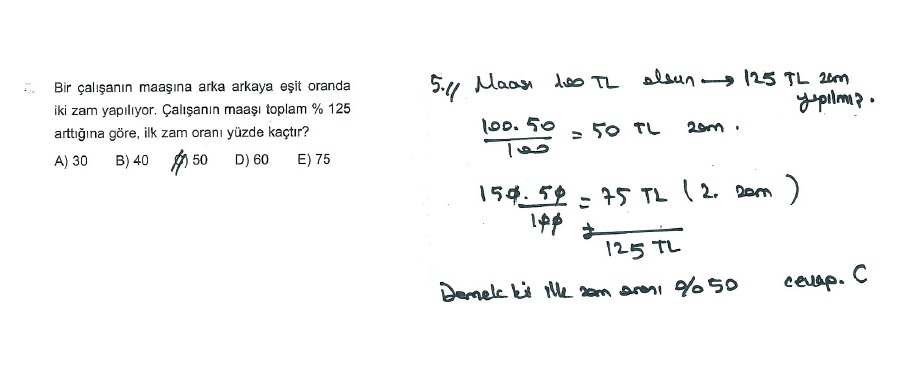 Bir çalışanın maaşına arka arkaya eşit oranda
iki zam yapılıyor. Çalışanın maaşı toplam % 125
arttığına göre, ilk zam oranı yüzde kaçtır?
A) 30 B) 40 C) 50 D) 60 E) 75
5.// Maaşı 100 TL olsun → 125 TL zam
yapılmış.
100.50
/100 = 50 TL zam.
150.50
/100 = 75 TL (2. zam)
+
125 TL
Demek ki ilk zam oranı %50 cevap. C